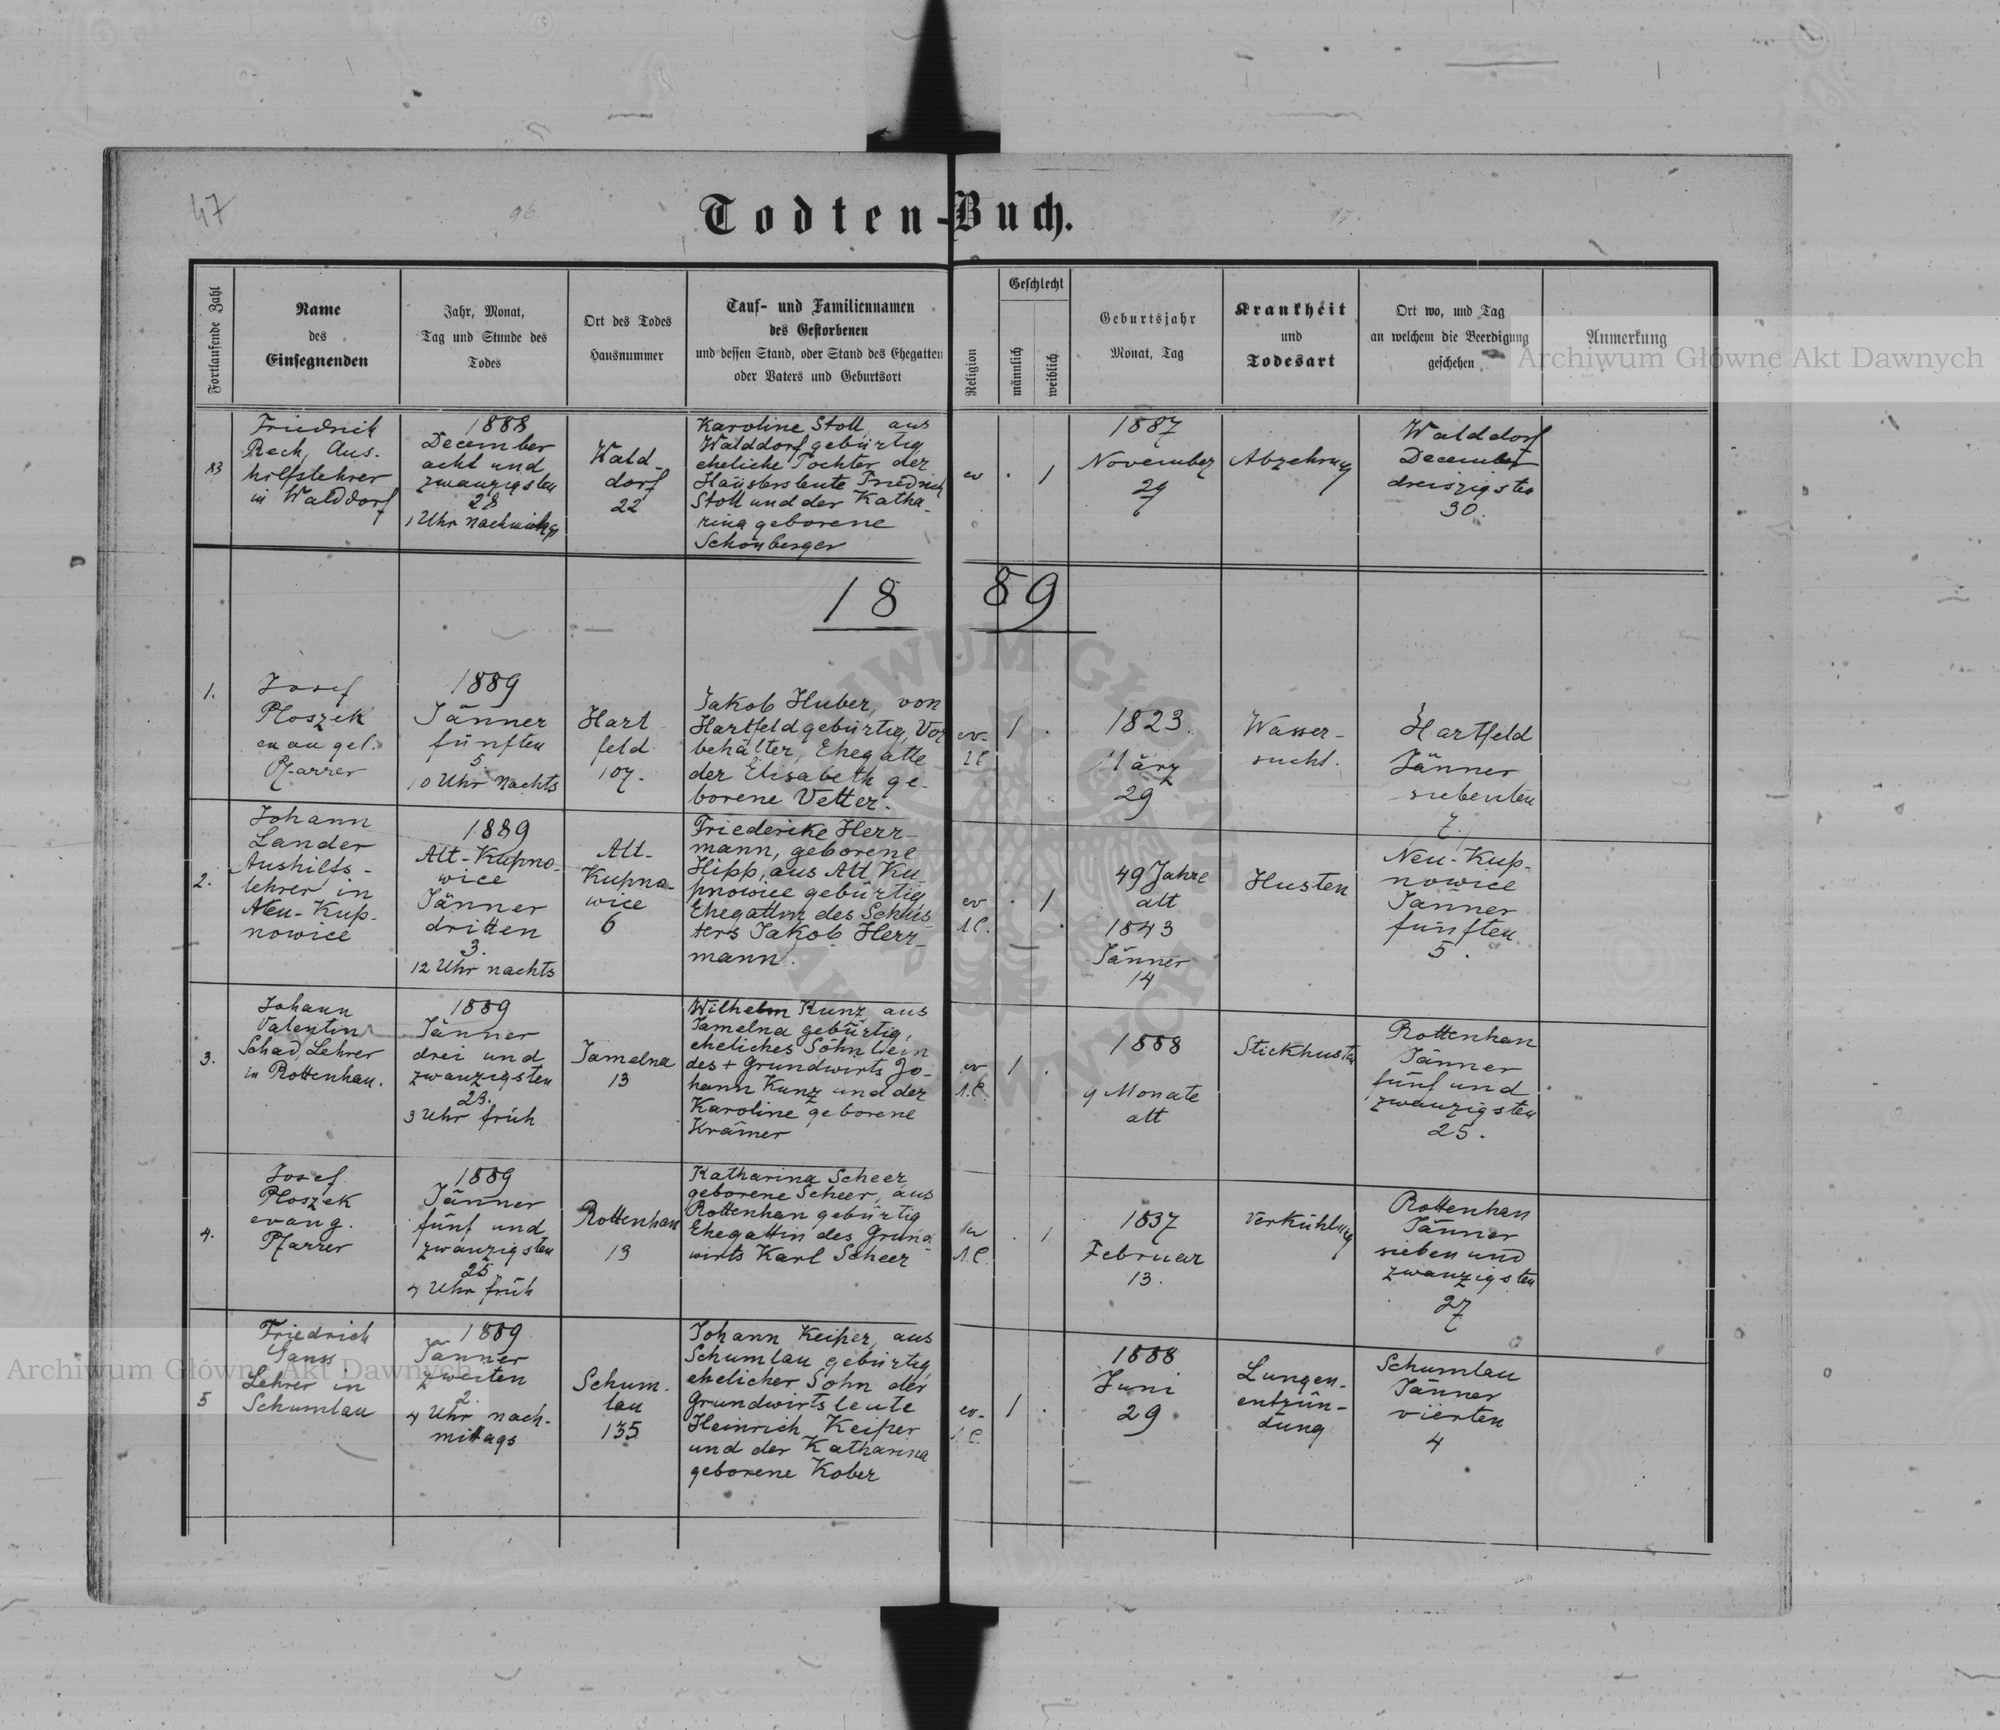 47
96
97.
Todten-Buch.
Fortlaufende Zahl
Name
des
Einsegnenden
Jahr, Monat,
Tag und Stunde des
Todes
Ort des Todes
Hausnummer
Tauf- und Familiennamen
des Gestorbenen
und dessen Stand, oder Stand des Ehegatten
oder Vaters und Geburtsort
Religion
Geschlecht
männlich
weiblich
Geburtsjahr
Monat, Tag
Krankheit
und
Todesart
Ort wo, und Tag
an welchem die Beerdigung
geschehen
Anmerkung
83
Friedrich
Rech, Aus-
hilfslehrer
in Walddorf
1888
December
acht und
zwanzigsten
28
1 Uhr nachmittags
Wald-
dorf
22
Karoline Stoll, aus
Walddorf gebürtig
eheliche Tochter der
Häuslersleute Friedrich
Stoll und der Katha-
rina geborene
Schönberger
ev
. 1
1887
November
29
Abzehrung
Walddorf
December
dreiszigsten
30.
1889
1.
Josef
Ploszek
evangel.
Pfarrer
1889
Jänner
fünften
5.
10 Uhr Nachts
Hart
feld
107.
Jakob Huber, von
Hartfeld gebürtig, Vor
behälter, Ehegatte
der Elisabeth ge-
borene Vetter.
ev.
1 .
1823.
März
29
Wasser-
sucht.
Hartfeld
Jänner
siebenten
7.
2.
Johann
Lander
Aushilfs-
lehrer in
Neu-Kup-
nowice
1889
Alt-Kupno-
wice
Jänner
dritten
3.
12 Uhr nachts
Alt-
Kupno-
wice
6
Friederike Herr-
mann, geborene
Hipp, aus Alt Ku-
pnowice gebürtig
Ehegattin des Schus
ters Jakob Herr-
mann.
ev
A.C.
. 1
49 Jahre
alt
1843
Jänner
14
Husten
Neu-Kup-
nowice
Jänner
fünften
5.
3.
Johann
Valentin
Schad, Lehrer
in Rottenhan.
1889
Jänner
drei und
zwanzigsten
23.
3 Uhr früh
Jamelna
13
Wilhelm Kunz aus
Jamelna gebürtig,
eheliches Söhnlein
des + Grundwirts Jo-
hann Kunz und der
Karoline geborene
Krämer
ev
A.C.
1 .
1888
9 Monate
alt
Stickhusten
Rottenhan
Jänner
fünf und
zwanzigsten
25.
4.
Josef
Ploszek
evang.
Pfarrer
1889
Jänner
fünf und
zwanzigsten
25
4 Uhr früh
Rottenhan
13
Katharina Scheer
geborene Scheer, aus
Rottenhan gebürtig
Ehegattin des Grund-
wirts Karl Scheer
ev
A.C.
. 1
1837
Februar
13.
Verkühlung
Rottenhan
Jänner
sieben und
zwanzigsten
27
5
Friedrich
Lehrer in
Schumlau
1889
Jänner
zweiten
2.
4 Uhr nach-
mittags
Schum-
lau
135
Johann Keiper, aus
Schumlau gebürtig
ehelicher Sohn der
Grundwirtsleute
Heinrich Keiper
und der Katharina
geborene Kober
ev.
A.C.
1 .
1888
Juni
29
Lungen-
entzün-
dung
Schumlau
Jänner
vierten
4
Archiwum Główne Akt Dawnych
Archiwum Główne Akt Dawnych